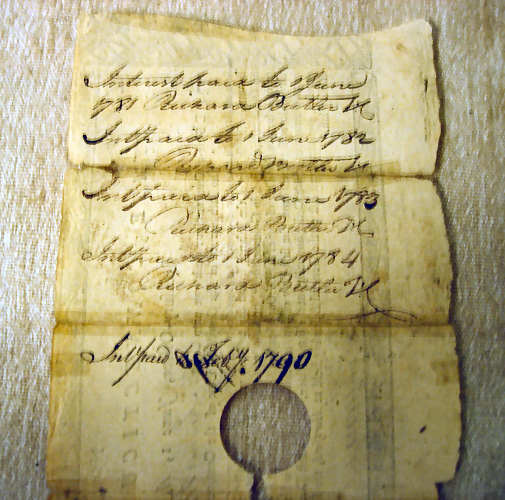 Interest paid to 1 June
1781 Richard Butler
Int paid to 1 June 1782
Richard Butler
Int paid to 1 June 1783
Richard Butler
Int paid to 1 June 1784
Richard Butler
Int paid to Feby. 1790